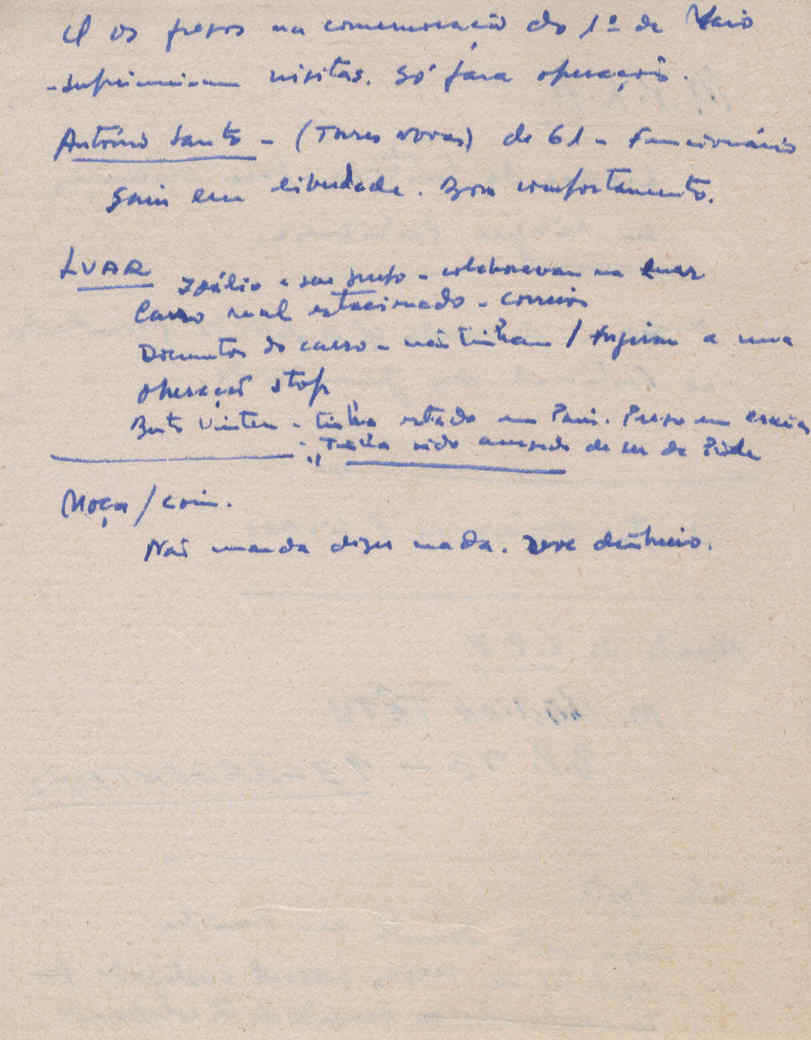 os presos na comemoração do 1º de Maio
- suprimiram visitas. Só para operações.
António Santo - (Torres Novas) de 61 - Funcionário
Saiu em liberdade. Bom comportamento.
LUAR
e seu grupo - colaboravam na Luar
Carro mal estacionado - correios
Documentos do carro - não tinham / fugiram a uma
operação stop
- tinha estado em Paris. Preso em
- " Tinha sido acusado de ser da Pide
Moça / com.
Não manda dizer nada. Deve dinheiro.